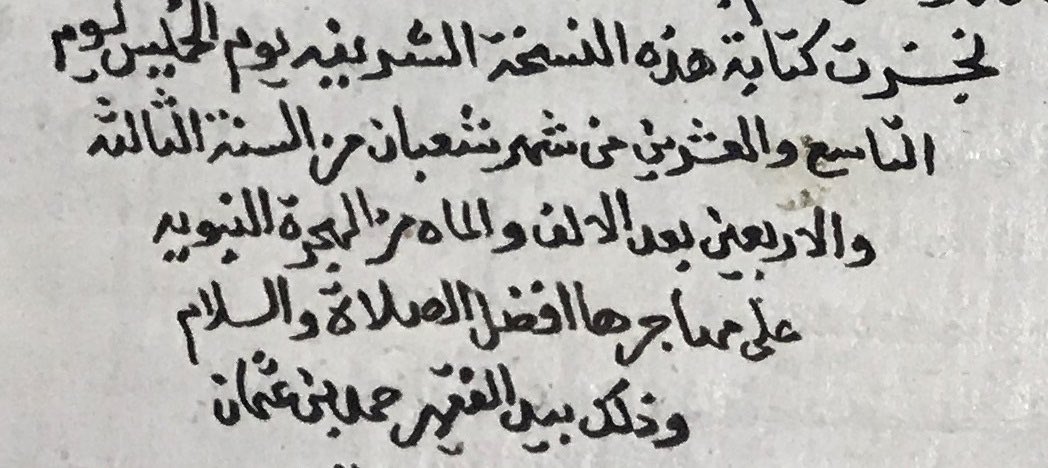 نجزت كتابة هذه النسخة الشريفه يوم الخميس ليوم
التاسع والعشرين من شهر شعبان من السنة الثالثه
والاربعين بعد الالف والماه من الهجرة النبويه
على مهاجرها افضل الصلاة والسلام
وذلك بيد الفقير حمد بن عثمان